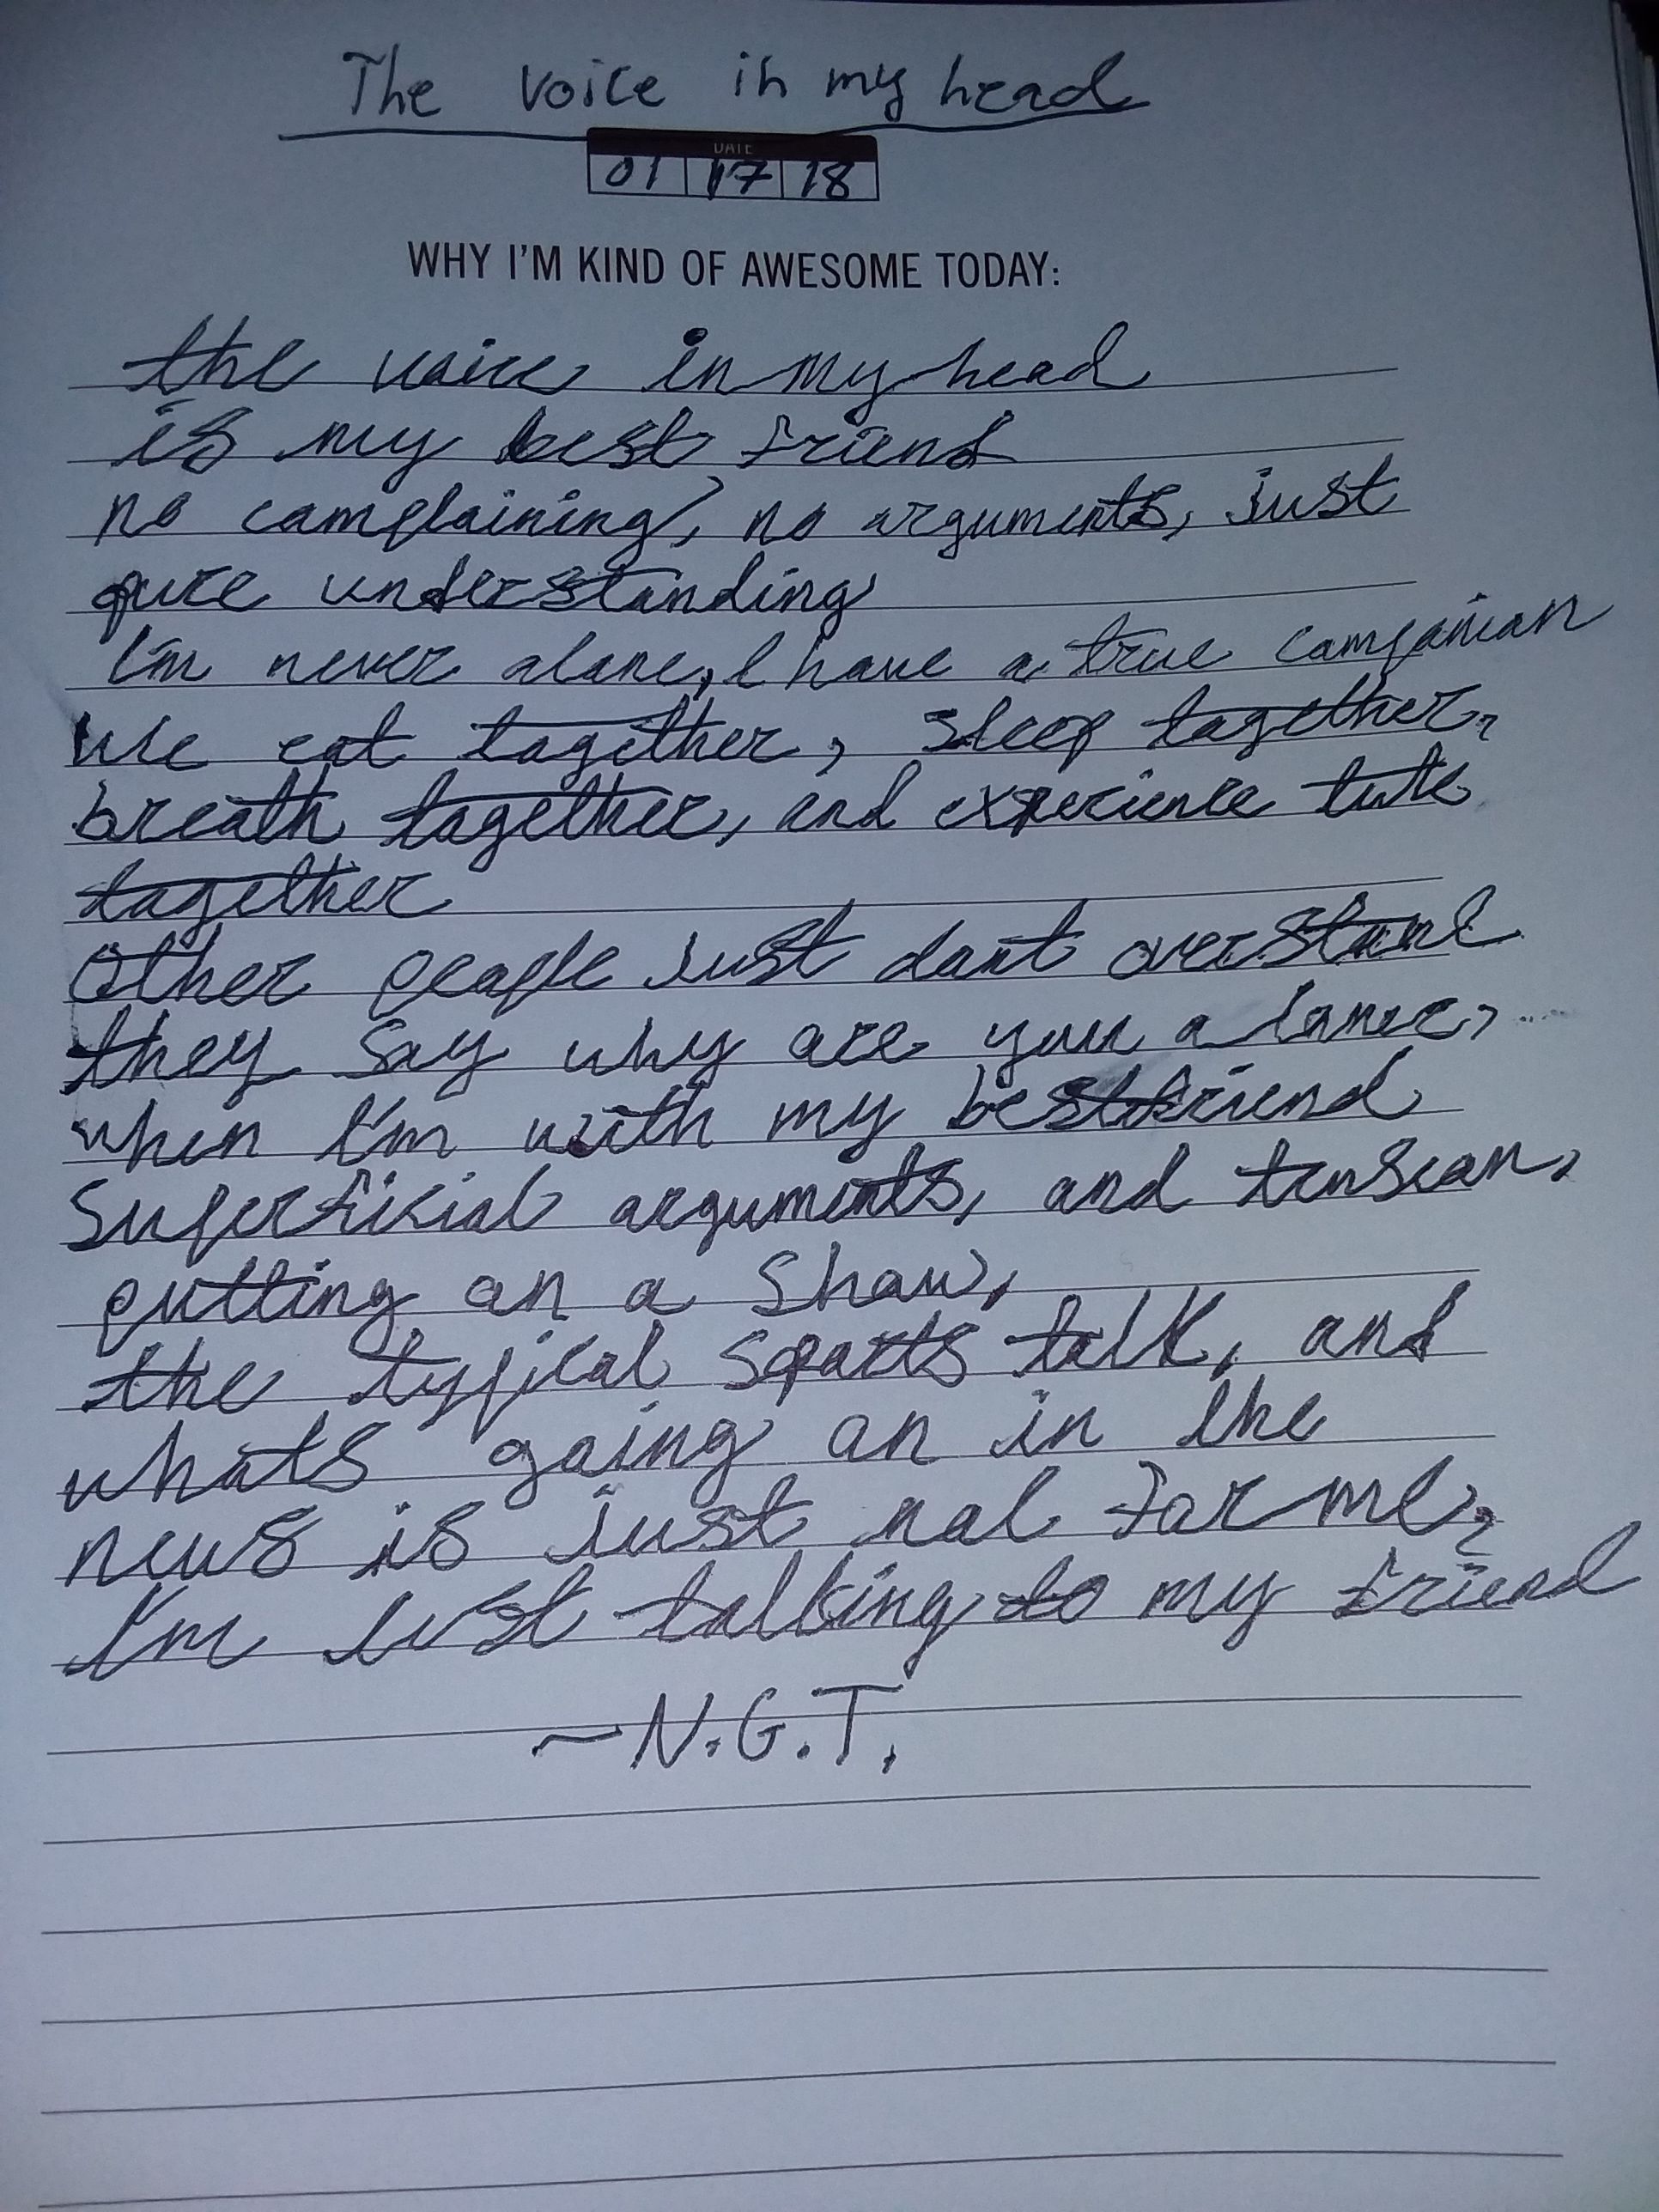 The voice in my head
DATE
01 17 18
WHY I'M KIND OF AWESOME TODAY:
the voice in my head
is my best friend
no complaining, no arguments, just
pure understanding
I'm never alone, I have a true companion
We eat together, sleep together,
breath together, and experience
together
Other people just don't overstand
they say why are you a loner,
when I'm with my bestfriend
Superficial arguments, and
putting on a show,
the typical sports talk, and
whats going on in the
news is just not for me,
I'm just talking to my friend
~N.G.T.